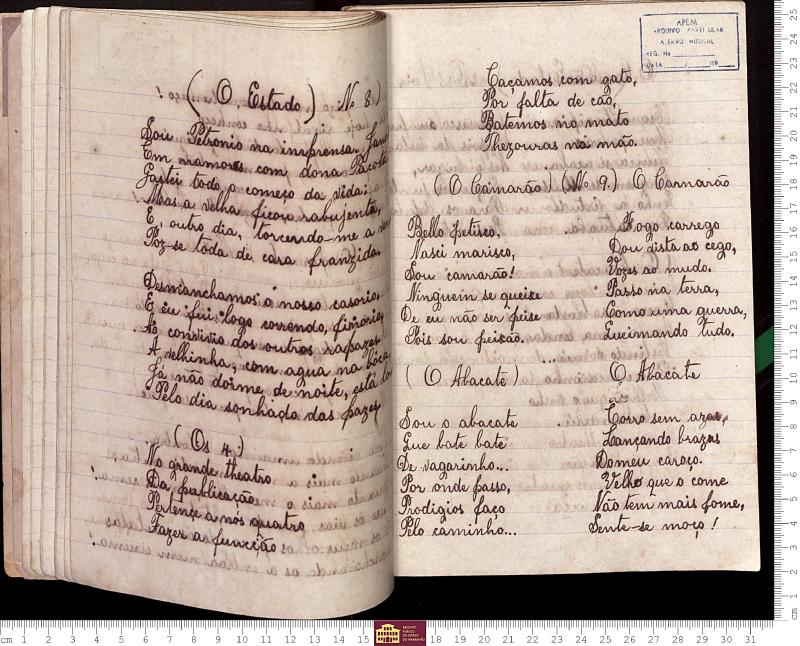 (O Estado) Nº 8.)
Sou Petronio na imprensa.
Em namoros com dona Pacoti
Gastei todo o começo da vida:
Mas a velha ficou rabujenta,
E, outro dia, torcendo-me a
Poz-se toda de cara franzida.
Desmanchamos o nosso casorio,
E eu fui logo correndo, finorio,
Ao convivio dos outros rapazes
A velhinha, com agua na bôca,
Já não dorme de noite, está lo
Pelo dia sonhado das pazes
(Os 4.)
No grande theatro
Da publicação
Pertence a nós quatro
Fazer a funcção
APEM
ARQUIVO PARTICULAR
ACERVO MUSICAL
REG. No
DATA / /19
Caçamos com gato,
Por falta de cão,
Batemos no mato
Thezouras na mão.
(O Camarão) (Nº 9.) O Camarão
Bello petisco,
Nasci marisco,
Sou camarão!
Ninguem se queixe
De eu não ser peixe
Pois sou peixão.
Fogo carrego
Dou vista ao cego,
Vozes ao mudo.
Passo na terra,
Como uma guerra,
Queimando tudo.
(O Abacate) O Abacate
Sou o abacate
Que bate bate
De vagarinho...
Por onde passo,
Prodigios faço
Pelo caminho...
Corro sem azas,
Lançando brazas
Do meu caroço.
Velho que o come
Não tem mais fome,
Sente-se moço!
cm 1 2 3 4 5 6 7 8 9 10 11 12 13 14 15 16
ARQUIVO PÚBLICO DO ESTADO DO MARANHÃO
18 19 20 21 22 23 24 25 26 27 28 29 30 31
cm 1 2 3 4 5 6 7 8 9 10 11 12 13 14 15 16 17 18 19 20 21 22 23 24 25